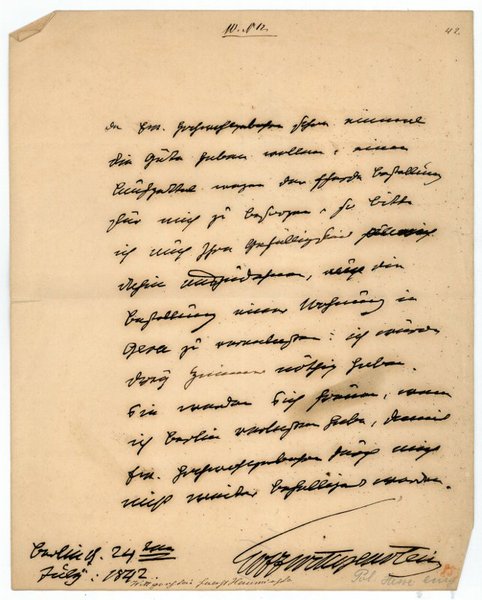 42.
da Ew. Hochwohlgeboren schon einmal
die Güte haben wollen, einen
wegen der Pferde Bestellung
für mich zu besorgen, so bitte
ich mich Ihre Gefälligkeit
dahin auszudehnen, die
Bestellung einer Wohnung in
Gera zu veranlassen: ich würde
drey Zimmer nöthig haben.
Sie werden Sich freuen, wenn
ich Berlin verlassen habe, damit
Ew. Hochwohlgeboren durch mich
nicht weiter belästiget werden.
Berlin d. 24 ten
July: 1842
Wittgenstein